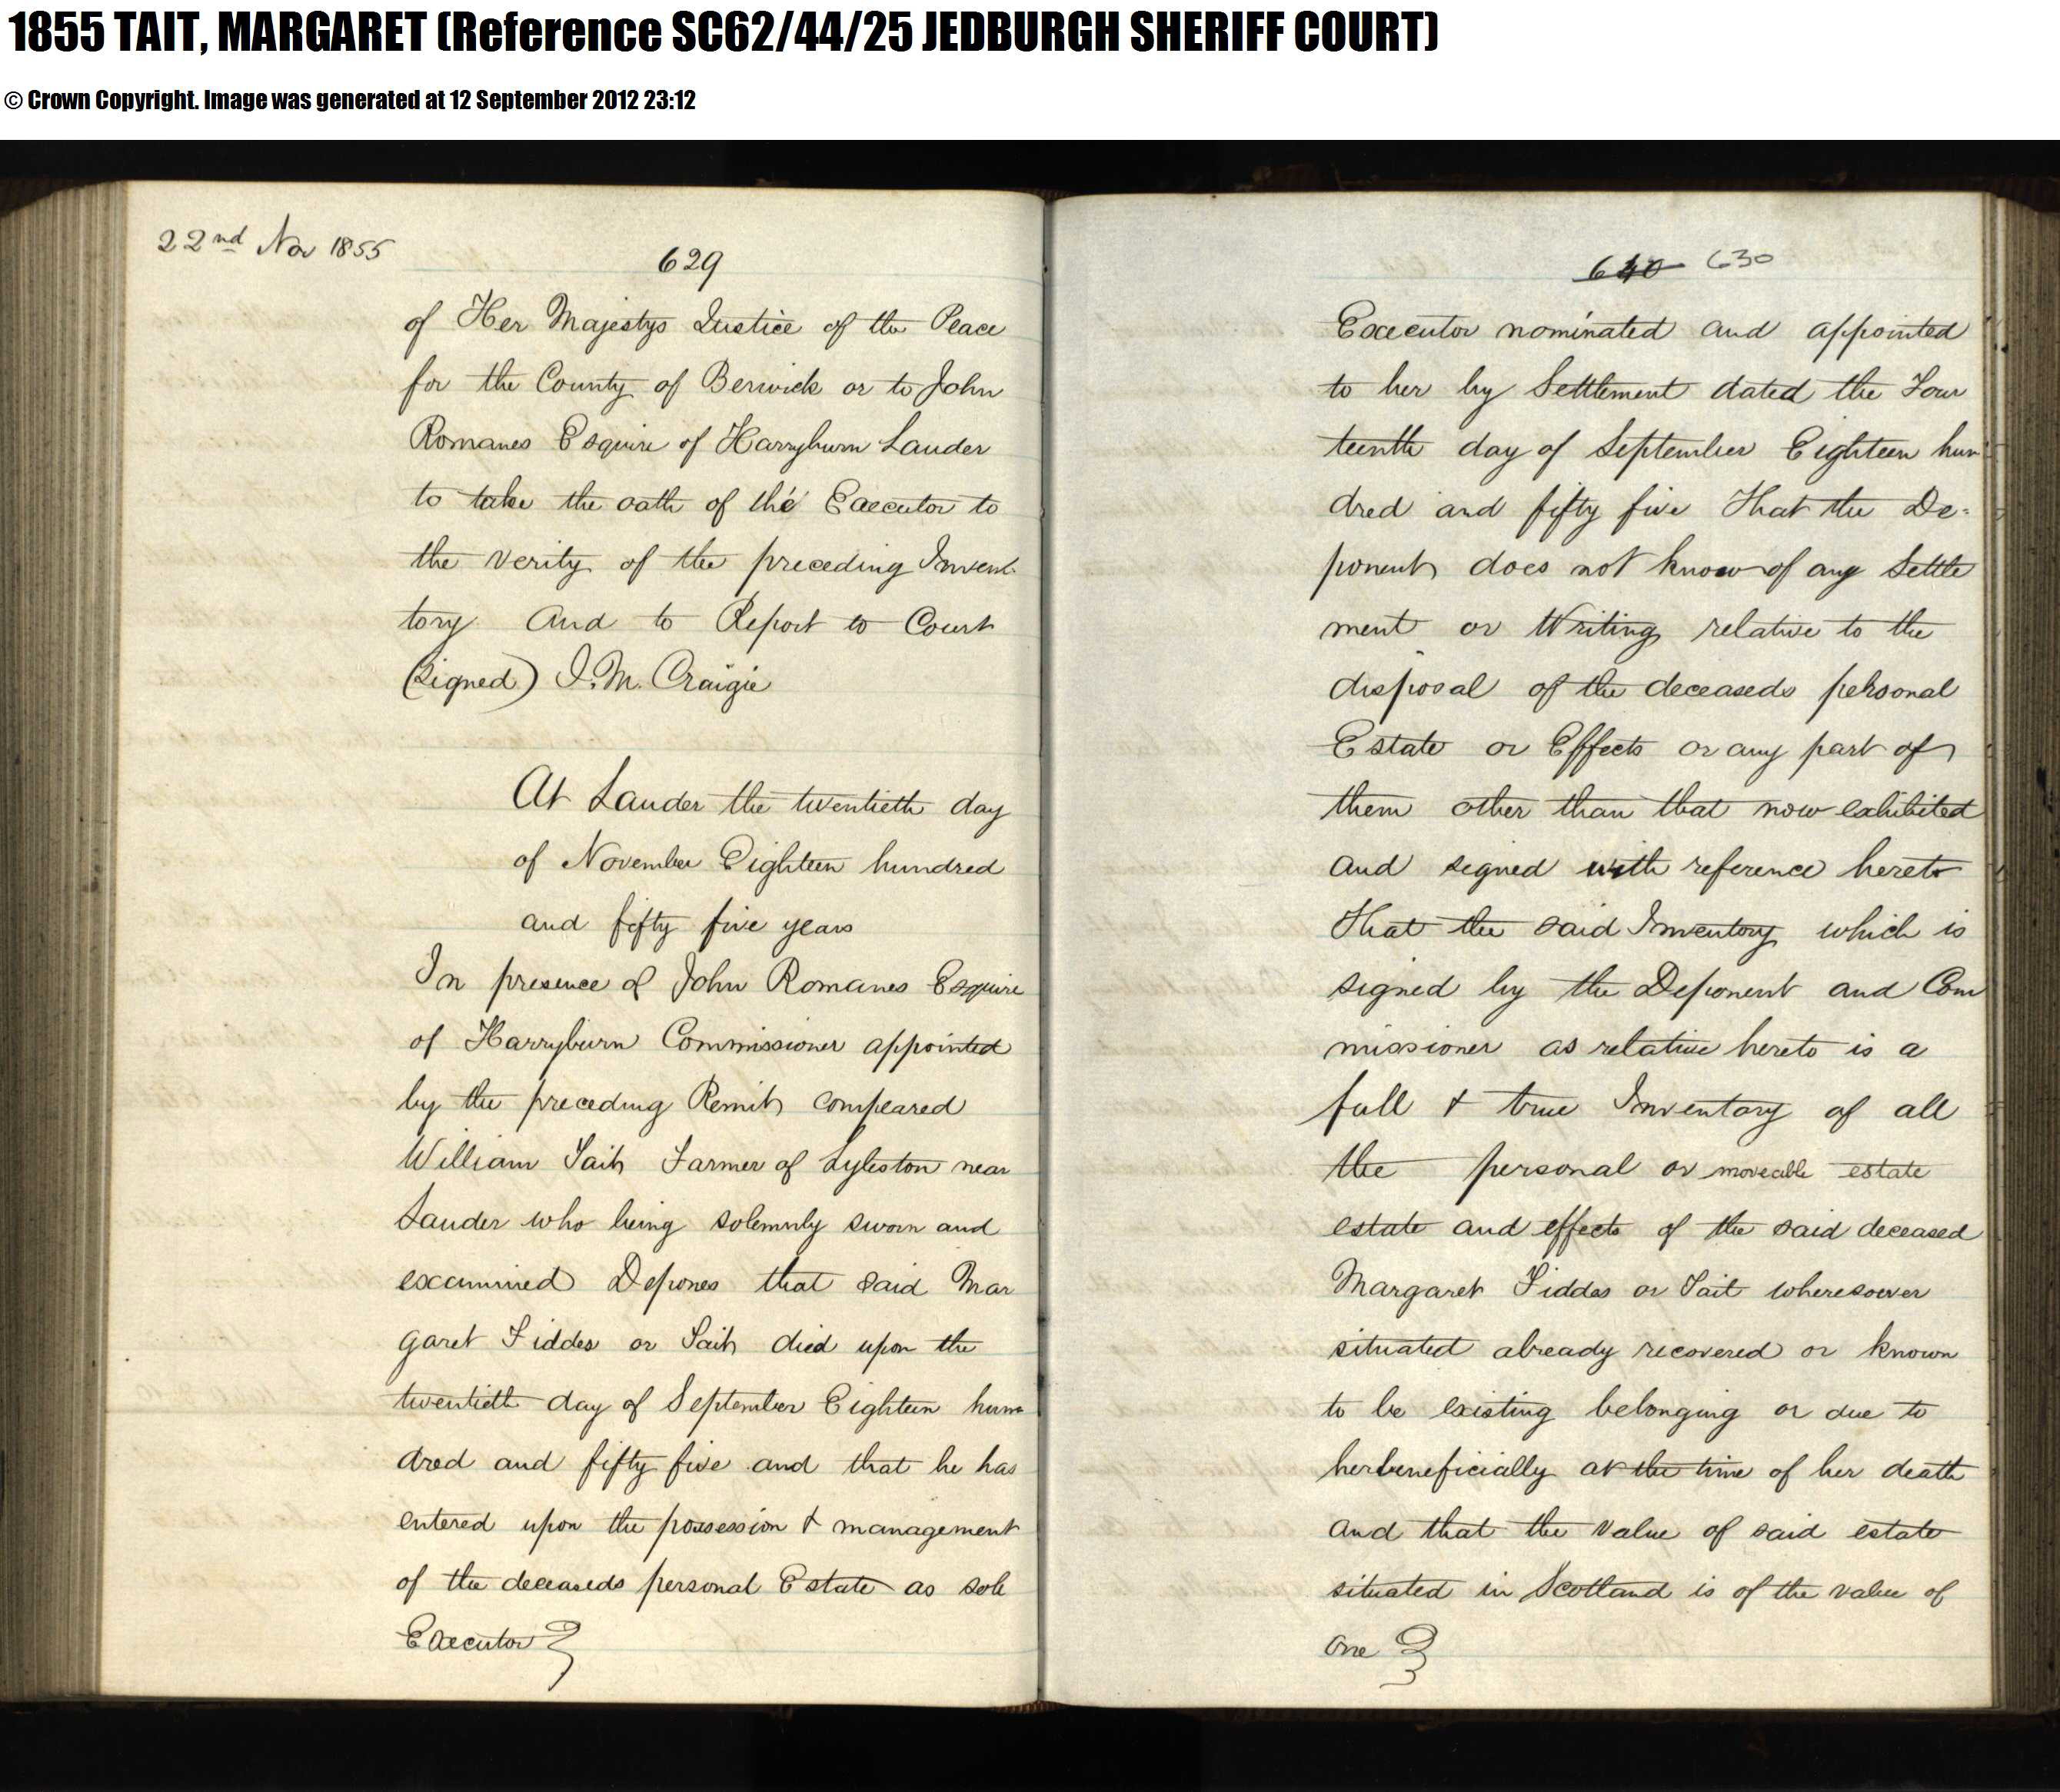 1855 TAIT, MARGARET (Reference SC62/44/25 JEDBURGH SHERIFF COURT)
© Crown Copyright. Image was generated at 12 September 2012 23:12
22nd Nov 1855
629
of Her Majestys Justice of the Peace
for the County of Berwick or to John
Romanes Esquire of Harryburn Lauder
to take the oath of the Executor to
the verity of the preceding Inven
tory And to Report to Court
(Signed) J. M. Craigie
At Lauder the twentieth day
of November Eighteen hundred
and fifty five years
In presence of John Romanes Esquire
of Harryburn Commissioner appointed
by the preceding Remit compeared
William Tait Farmer of Lyleston near
Lauder who being solemnly sworn and
examined Depones that said Mar
garet Fiddes or Tait died upon the
twentieth day of September Eighteen hun
dred and fifty five and that he has
entered upon the possession & management
of the deceaseds personal Estate as sole
Executor
640 630
Executor nominated and appointed
to her by Settlement dated the Four
teenth day of September Eighteen hun
dred and fifty five That the De=
ponent does not know of any Settle
ment or Writing relative to the
disposal of the deceaseds personal
Estate or Effects or any part of
them other than that now exhibited
and signed with reference hereto
That the said Inventory which is
signed by the Deponent and Com
missioner as relative hereto is a
full & true Inventory of all
the personal or moveable estate
estate and effects of the said deceased
Margaret Fiddes or Tait wheresoever
situated already recovered or known
to be existing belonging or due to
her beneficially at the time of her death
and that the value of said estate
situated in Scotland is of the value of
one